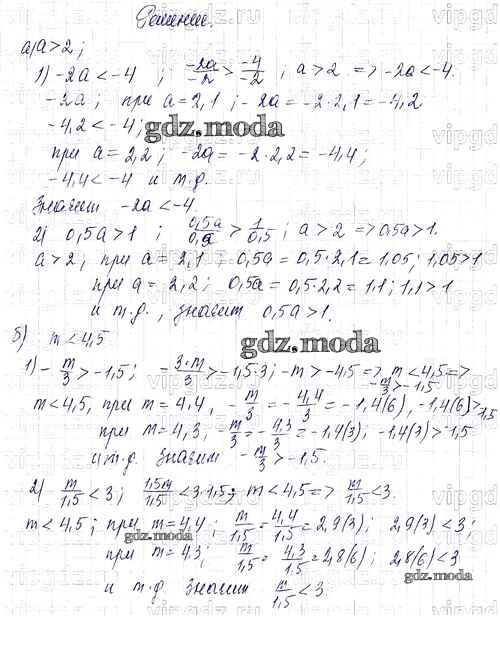 Решение.
а) a > 2;
1) -2a < -4 ; -2a/-2 > -4/-2 ; a > 2 => -2a < -4.
-2a ; при a = 2,1 ; -2a = -2·2,1 = -4,2
-4,2 < -4;
gdz.moda
при a = 2,2 ; -2a = -2·2,2 = -4,4 ;
-4,4 < -4 и т.д.
Значит -2a < -4
2) 0,5a > 1 ; 0,5a/0,5 > 1/0,5 ; a > 2 => 0,5a > 1.
a > 2 ; при a = 2,1 ; 0,5a = 0,5·2,1 = 1,05; 1,05 > 1
при a = 2,2; 0,5a = 0,5·2,2 = 1,1; 1,1 > 1
и т.д., значит 0,5a > 1.
б) m < 4,5
gdz.moda
1) -m/3 > -1,5; -3·m/3 > -1,5·3; -m > -4,5 => m < 4,5 =>
-m/3 > -1,5
m < 4,5, при m = 4,4, -m/3 = -4,4/3 = -1,4(6), -1,4(6) > -1,5
при m = 4,3, -m/3 = -4,3/3 = -1,4(3); -1,4(3) > -1,5
и т.д. Значит -m/3 > -1,5.
2) m/1,5 < 3; 1,5m/1,5 < 3·1,5; m < 4,5 => m/1,5 < 3.
m < 4,5 ; при m = 4,4 ; m/1,5 = 4,4/1,5 = 2,9(3); 2,9(3) < 3;
при m = 4,3; m/1,5 = 4,3/1,5 = 2,8(6); 2,8(6) < 3
gdz.moda
и т.д. Значит m/1,5 < 3.
gdz.moda